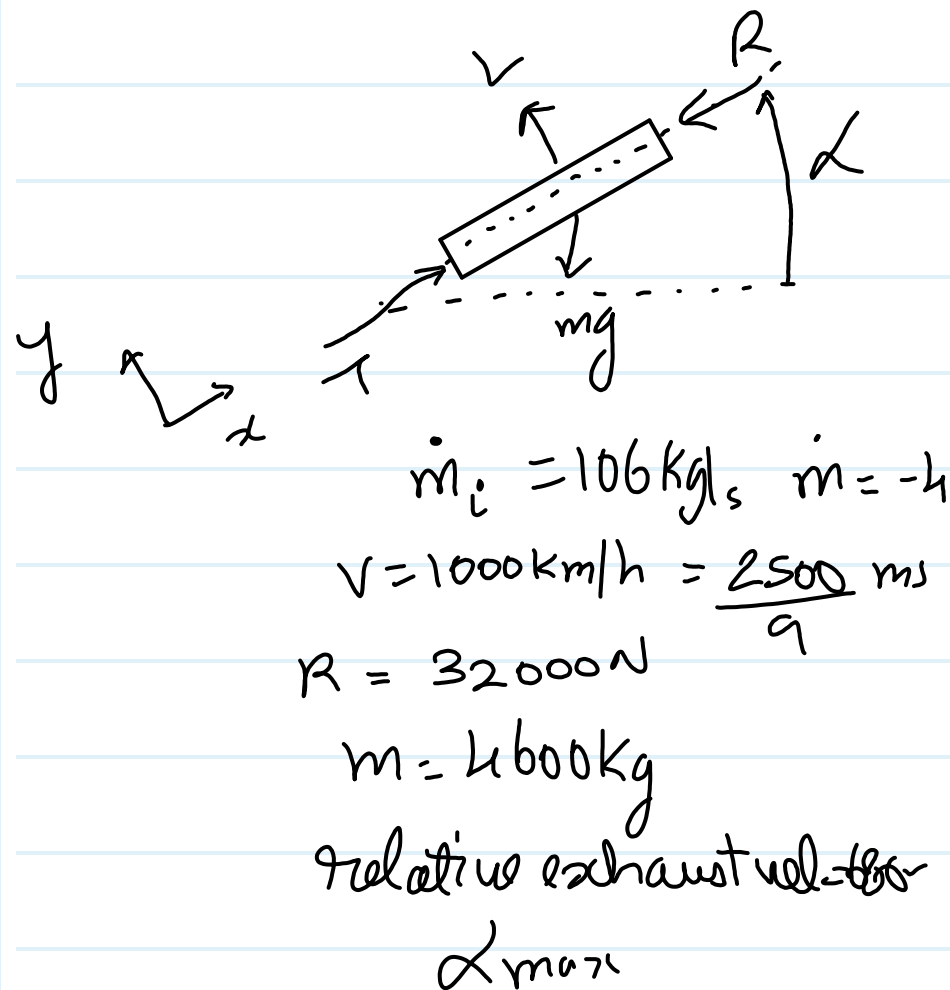 R
V
α
mg
T
y
x
ṁᵢ = 106 kg/s ṁ = -4
V = 1000 km/h = 2500/9 ms
R = 32000N
m = 4600kg
relative exhaust vel =
α max